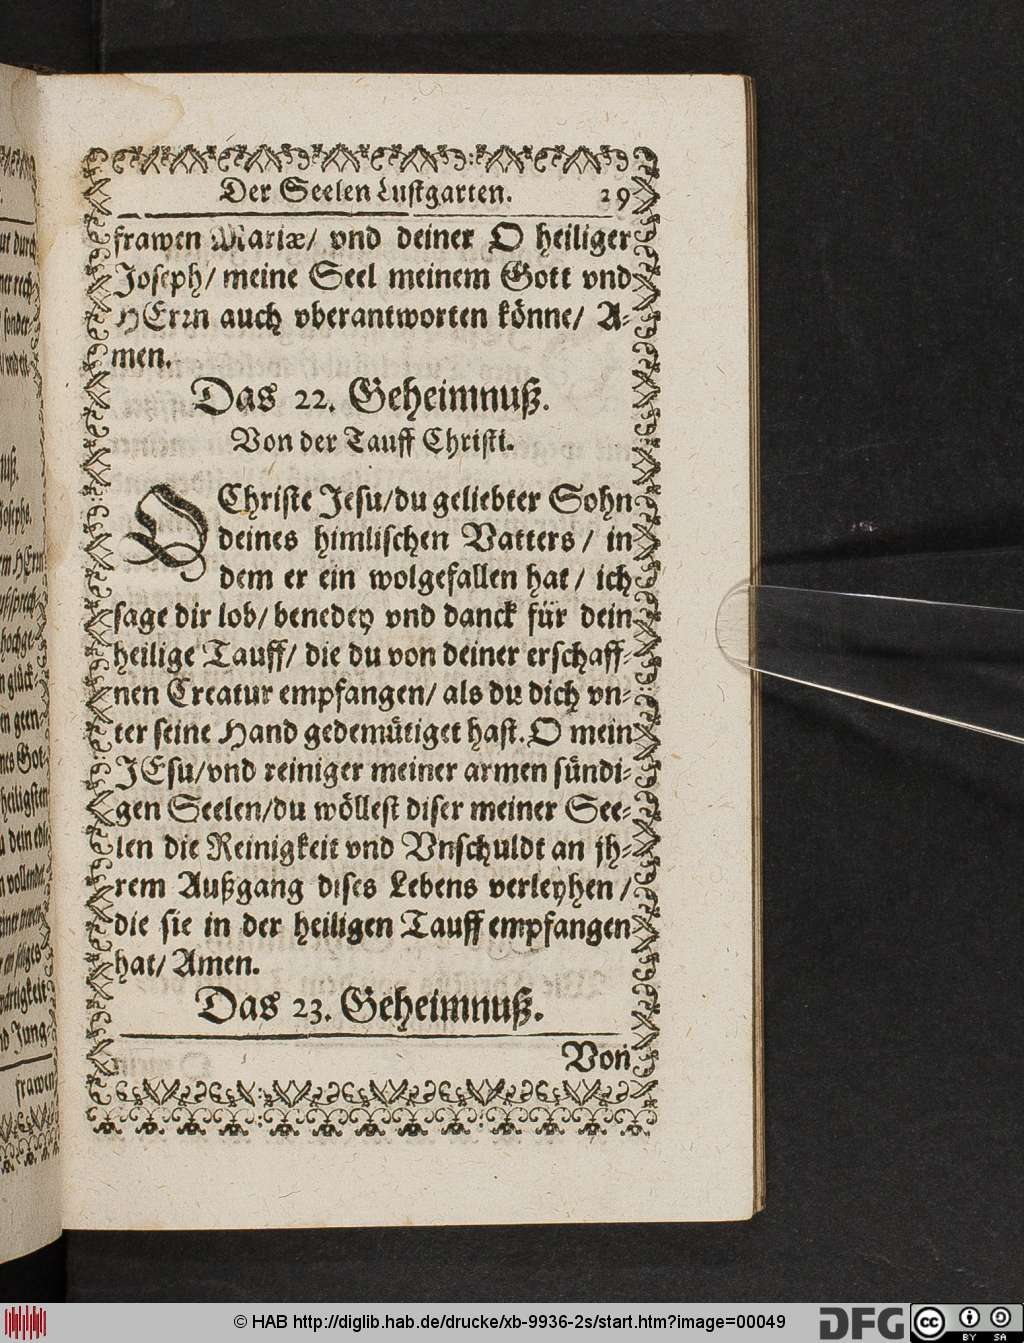 Der Seelen Lustgarten. 29
frawen Mariæ/ vnd deiner O heiliger
Joseph/ meine Seel meinem Gott vnd
HErrn auch vberantworten könne/ A-
men.
Das 22. Geheimnuß.
Von der Tauff Christi.
O Christe Jesu/ du geliebter Sohn
deines himlischen Vatters/ in
dem er ein wolgefallen hat/ ich
sage dir lob/ benedey vnd danck für dein
heilige Tauff/ die du von deiner erschaff-
nen Creatur empfangen/ als du dich vn-
ter seine Hand gedemütiget hast. O mein
JEsu/ vnd reiniger meiner armen sündi-
gen Seelen/ du wöllest diser meiner See-
len die Reinigkeit vnd Vnschuldt an jh-
rem Außgang dises Lebens verleyhen/
die sie in der heiligen Tauff empfangen
hat/ Amen.
Das 23. Geheimnuß.
Von
© HAB http://diglib.hab.de/drucke/xb-9936-2s/start.htm?image=00049
DFG
cc BY SA